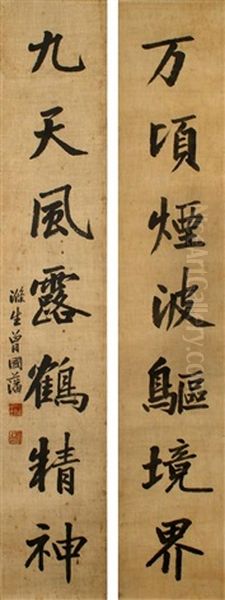 万頃煙波鷗境界
九天風露鶴精神
滌生曾國藩